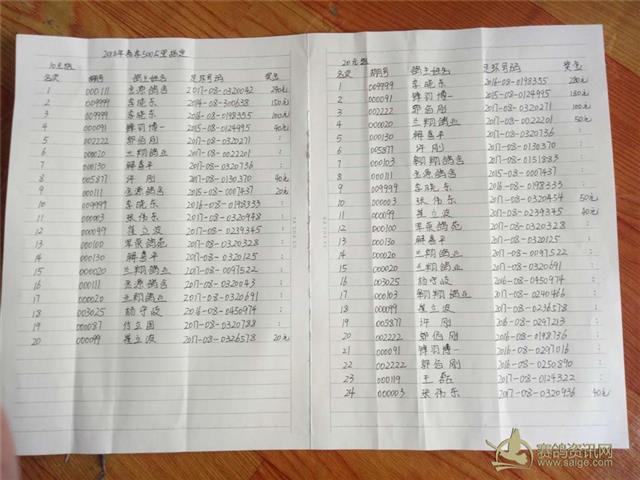 10元组
名次 棚号 鸽主姓名 足环号码 奖金
1 000111 鸽舍 2017-08-0320042 240元
2 009999 李晓东 2014-08-300638 150元
3 009999 李晓东 2016-08-0198355 100元
4 000091 锋羽博一 2015-08-0124995 40元
5 002222 郭伯刚 2017-08-0320271 :
6 000020 兰翔鸽业 2017-08-0022201 :
7 000130 解春平 2017-08-0320736 :
8 005877 许刚 2017-08-0130370 40元
9 000111 鸽舍 2015-08-0007437 20元
10 009999 李晓东 2016-08-0198333 :
11 000003 张伟东 2017-08-0320948 :
12 000099 崔立波 2017-08-0239345 :
13 000100 军荣鸽苑 2017-08-0320328 :
14 000130 解春平 2017-08-0320125 :
15 000020 兰翔鸽业 2017-08-0097522 :
16 000111 鸽舍 2017-08-0320461 :
17 000020 兰翔鸽业 2017-08-0320691 :
18 003025 杨守岐 2016-08-0450974 :
19 000087 立国 2017-08-0320788 :
20 000099 崔立波 2017-08-0326578 20元
20元组
名次 棚号 鸽主姓名 足环号码 奖金
1 009999 李晓东 2016-08-0198355
2 000091 锋羽博一 2015-08-0124995 180元
3 002222 郭伯刚 2017-08-0320271 100元
4 000020 兰翔鸽业 2017-08-0022201 50元
5 000130 解春平 2017-08-0320736 :
6 005877 许刚 2017-08-0130370 :
7 000103 翱翔鸽业 2017-08-0151883 :
8 000111 鸽舍 2015-08-0007437 :
9 009999 李晓东 2016-08-0198333 :
10 000003 张伟东 2017-08-0320454 50元
11 000099 崔立波 2017-08-0239345 40元
12 000100 军荣鸽苑 2017-08-0320328 :
13 000130 解春平 2017-08-0320125 :
14 000020 兰翔鸽业 2017-08-0097522 :
15 000020 兰翔鸽业 2017-08-0320691 :
16 003025 杨守岐 2016-08-0450974 :
17 000103 翱翔鸽业 2017-08-0240466 :
18 000099 崔立波 2017-08-0236578 :
19 005877 许刚 2016-08-0297213 :
20 002222 郭伯刚 2016-08-0198736 :
21 000091 锋羽博一 2016-08-0297016 :
22 002222 郭伯刚 2016-08-0250890 :
23 000119 王磊 2017-08-0124322 :
24 000003 张伟东 2017-08-0320936 40元
赛鸽资讯网
www.saige.com